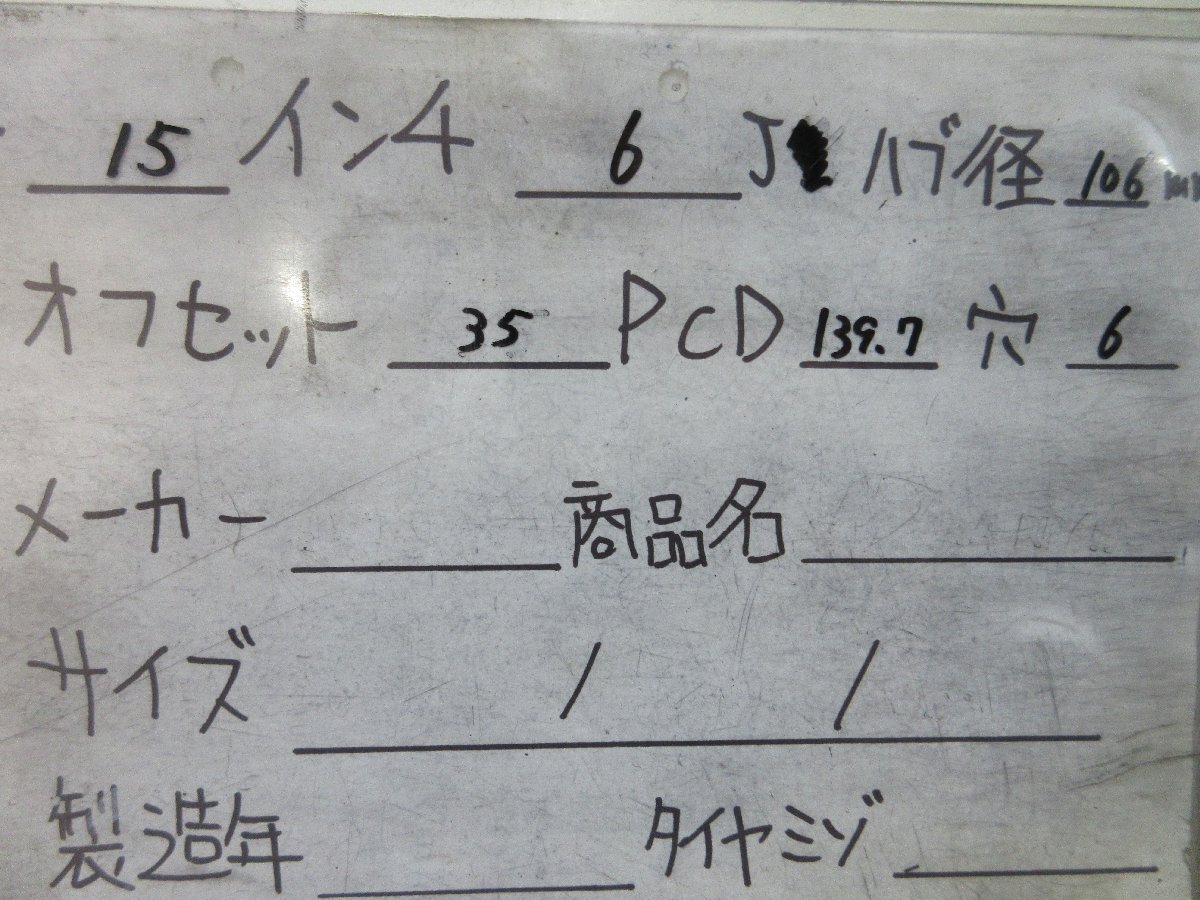 15 インチ 6 J ハブ径 106 mm
オフセット 35 PCD 139.7 穴 6
メーカー 商品名
サイズ / /
製造年 タイヤミゾ